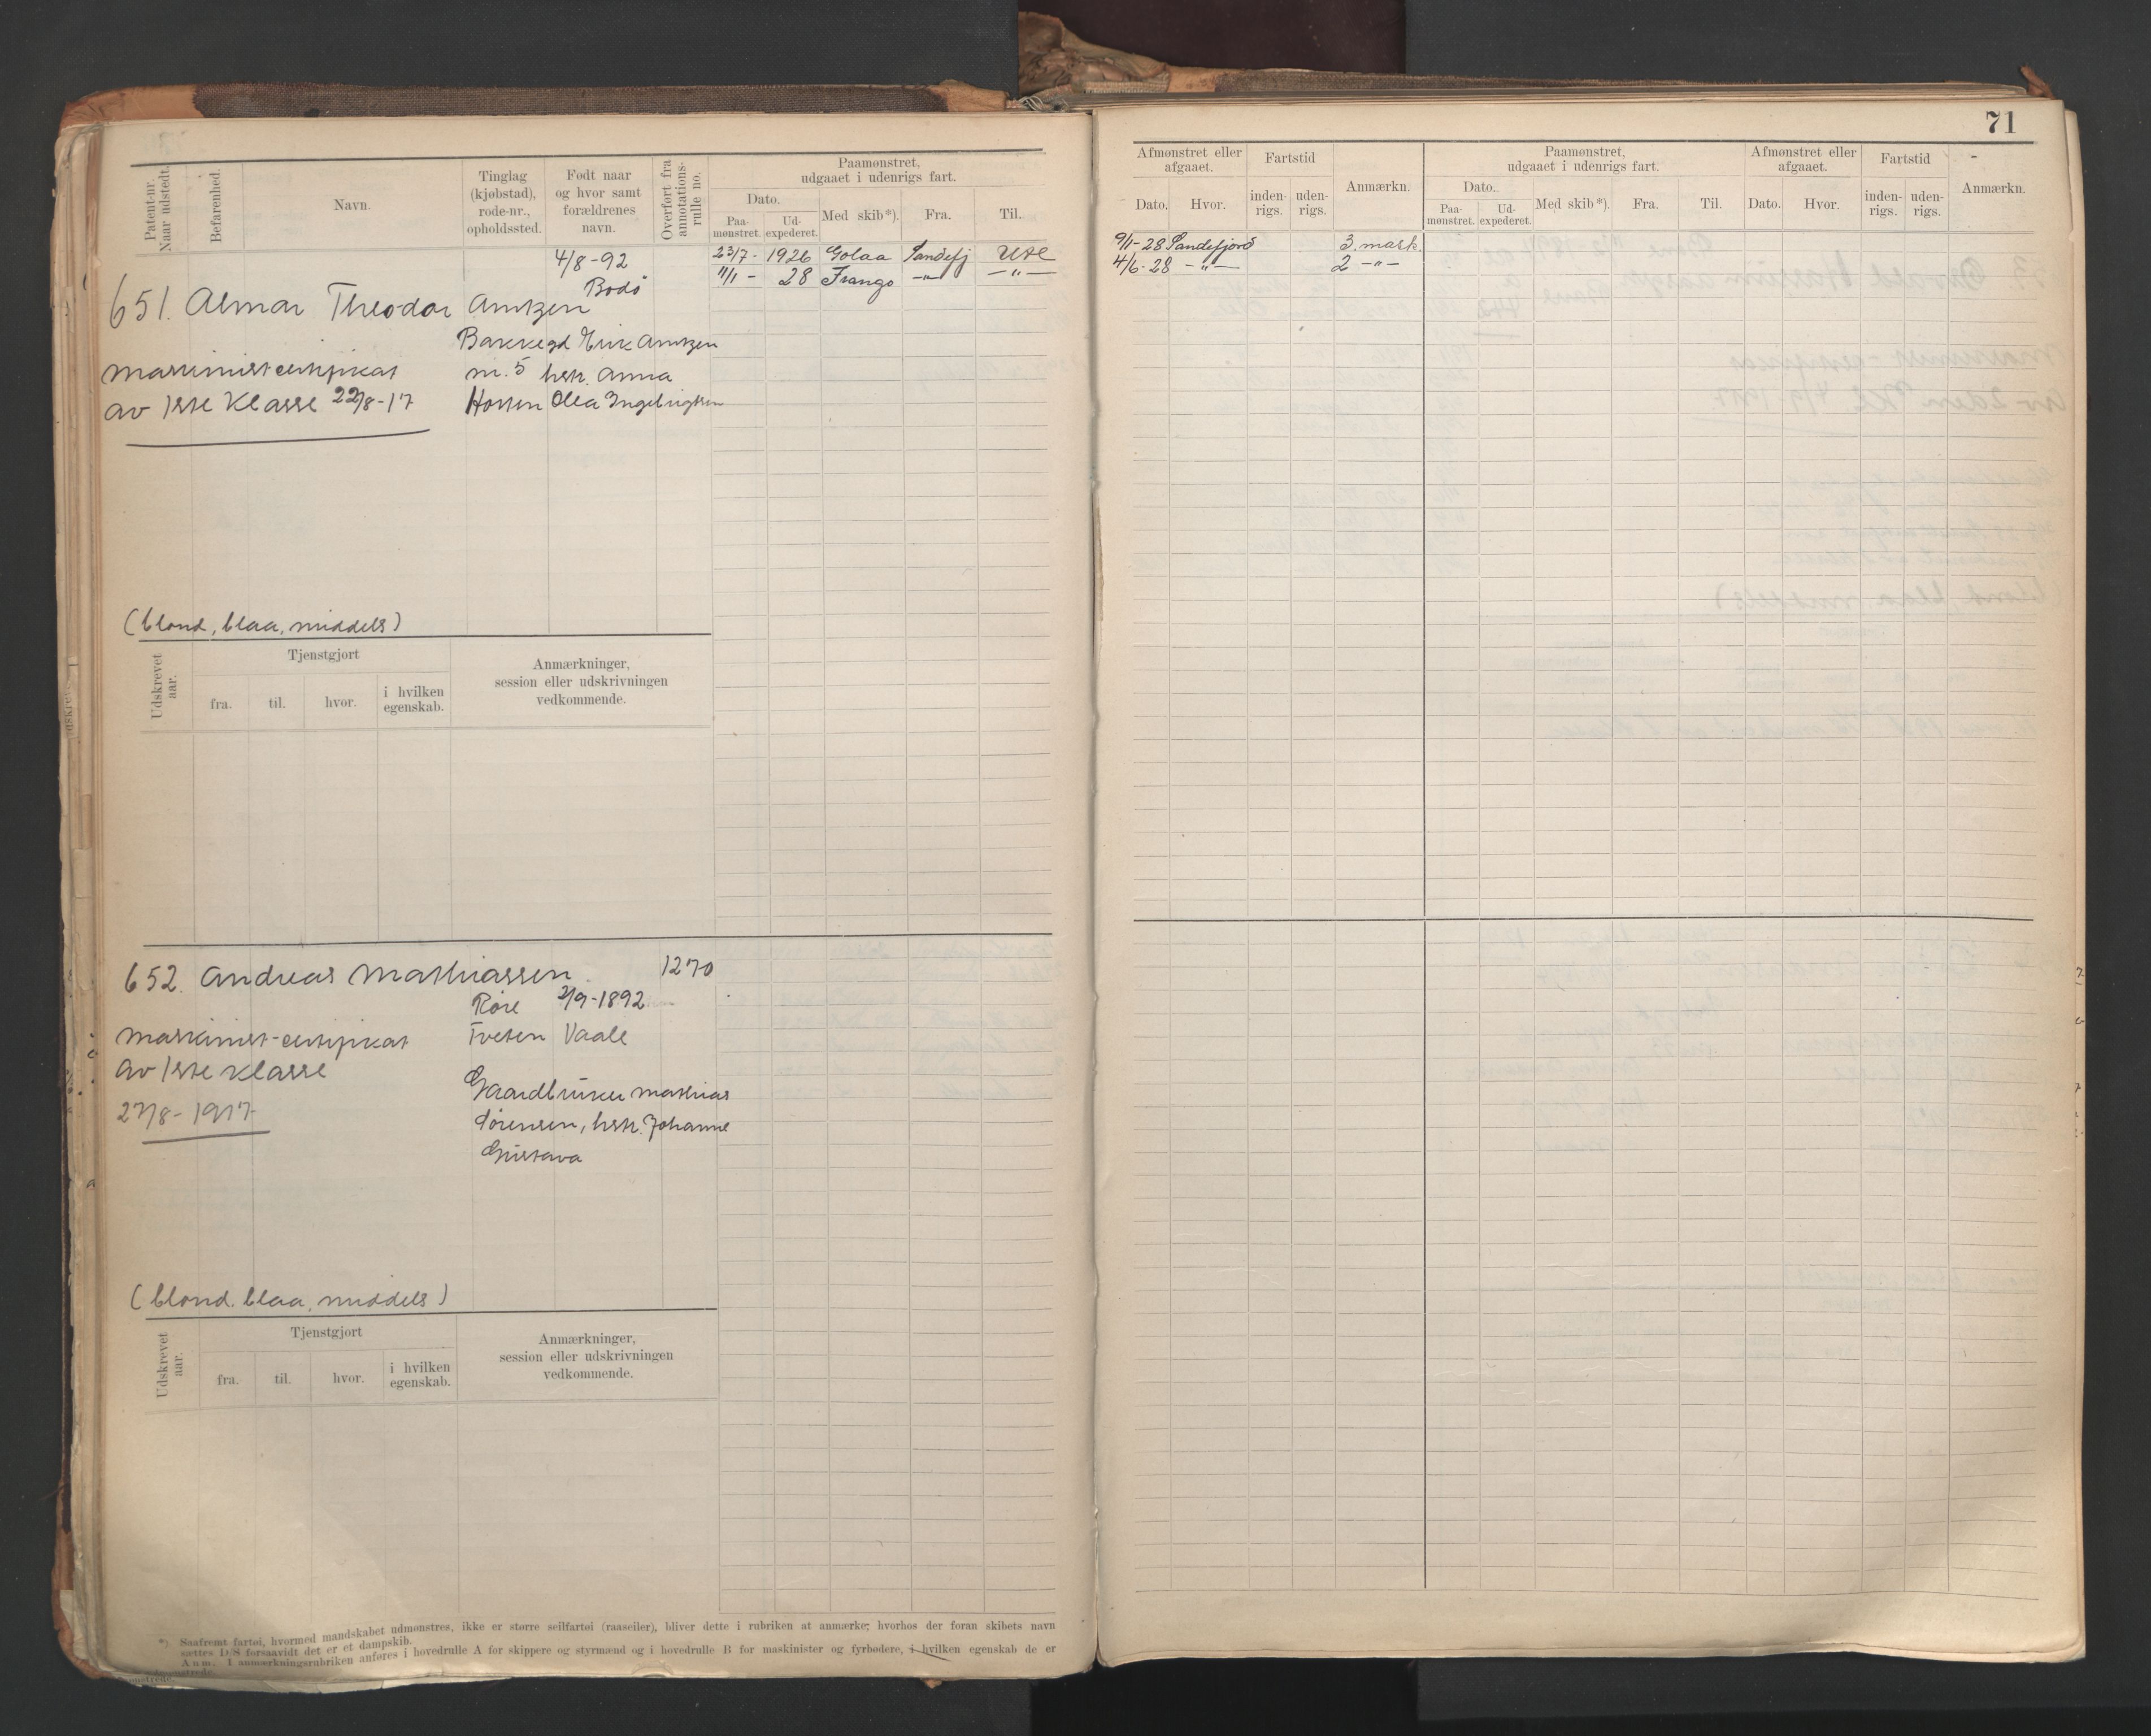 71
Patent-nr. Naar udstedt.
Befarenhed.
Navn.
Tinglag (kjøbstad), rode-nr., opholdssted.
Født naar og hvor samt forældrenes navn.
Overført fra annotations-rulle no.
Paamønstret, udgaaet i udenrigs fart.
Dato.
Paa-mønstret.
Ud-expederet.
Med skib*).
Fra.
Til.
Afmønstret eller afgaaet.
Dato.
Hvor.
Fartstid
inden-rigs.
uden-rigs.
Anmærkn.
Paamønstret, udgaaet i udenrigs fart.
Dato.
Paa-mønstret.
Ud-expederet.
Med skib*).
Fra.
Til.
Afmønstret eller afgaaet.
Dato.
Hvor.
Fartstid
inden-rigs.
uden-rigs.
Anmærkn.
4/8-92
Bodö
23/7- 1926 Golaa Sandefj Ute
11/1 - 28 Frango -"- -"-
9/1-28 Sandefjord 3. mask.
4/6-28 -"- 2 -"-
651. Almar Theodor Arntzen
Bakkegd Erik Arntzen
Maskinist certifikat nr. 5 hstr. Anna
av 1ste Klasse 22/8-17 Horten Olea Ingebrigtsen
(blond, blaa, middels)
Udskrevet aar.
Tjenstgjort
fra.
til.
hvor.
i hvilken egenskab.
Anmærkninger, session eller udskrivningen vedkommende.
652. Andreas Mathiassen 1270
Röre 2/9-1892
Maskinist-certifikat Tveten Vaale
av 1ste klasse
27/8-1917
Gaardbruker Mathias
Sörensen, hstr. Johanne
Gustava
(blond. blaa, middels)
Udskrevet aar.
Tjenstgjort
fra.
til.
hvor.
i hvilken egenskab.
Anmærkninger, session eller udskrivningen vedkommende.
*) Saafremt fartøi, hvormed mandskabet udmønstres, ikke er større seilfartøi (raaseiler), bliver dette i rubriken at anmærke; hvorhos der foran skibets navn
sættes D/S forsaavidt det er et dampskib.
Anm. I anmærkningsrubriken anføres i hovedrulle A for skippere og styrmænd og i hovedrulle B for maskinister og fyrbødere, i hvilken egenskab de er